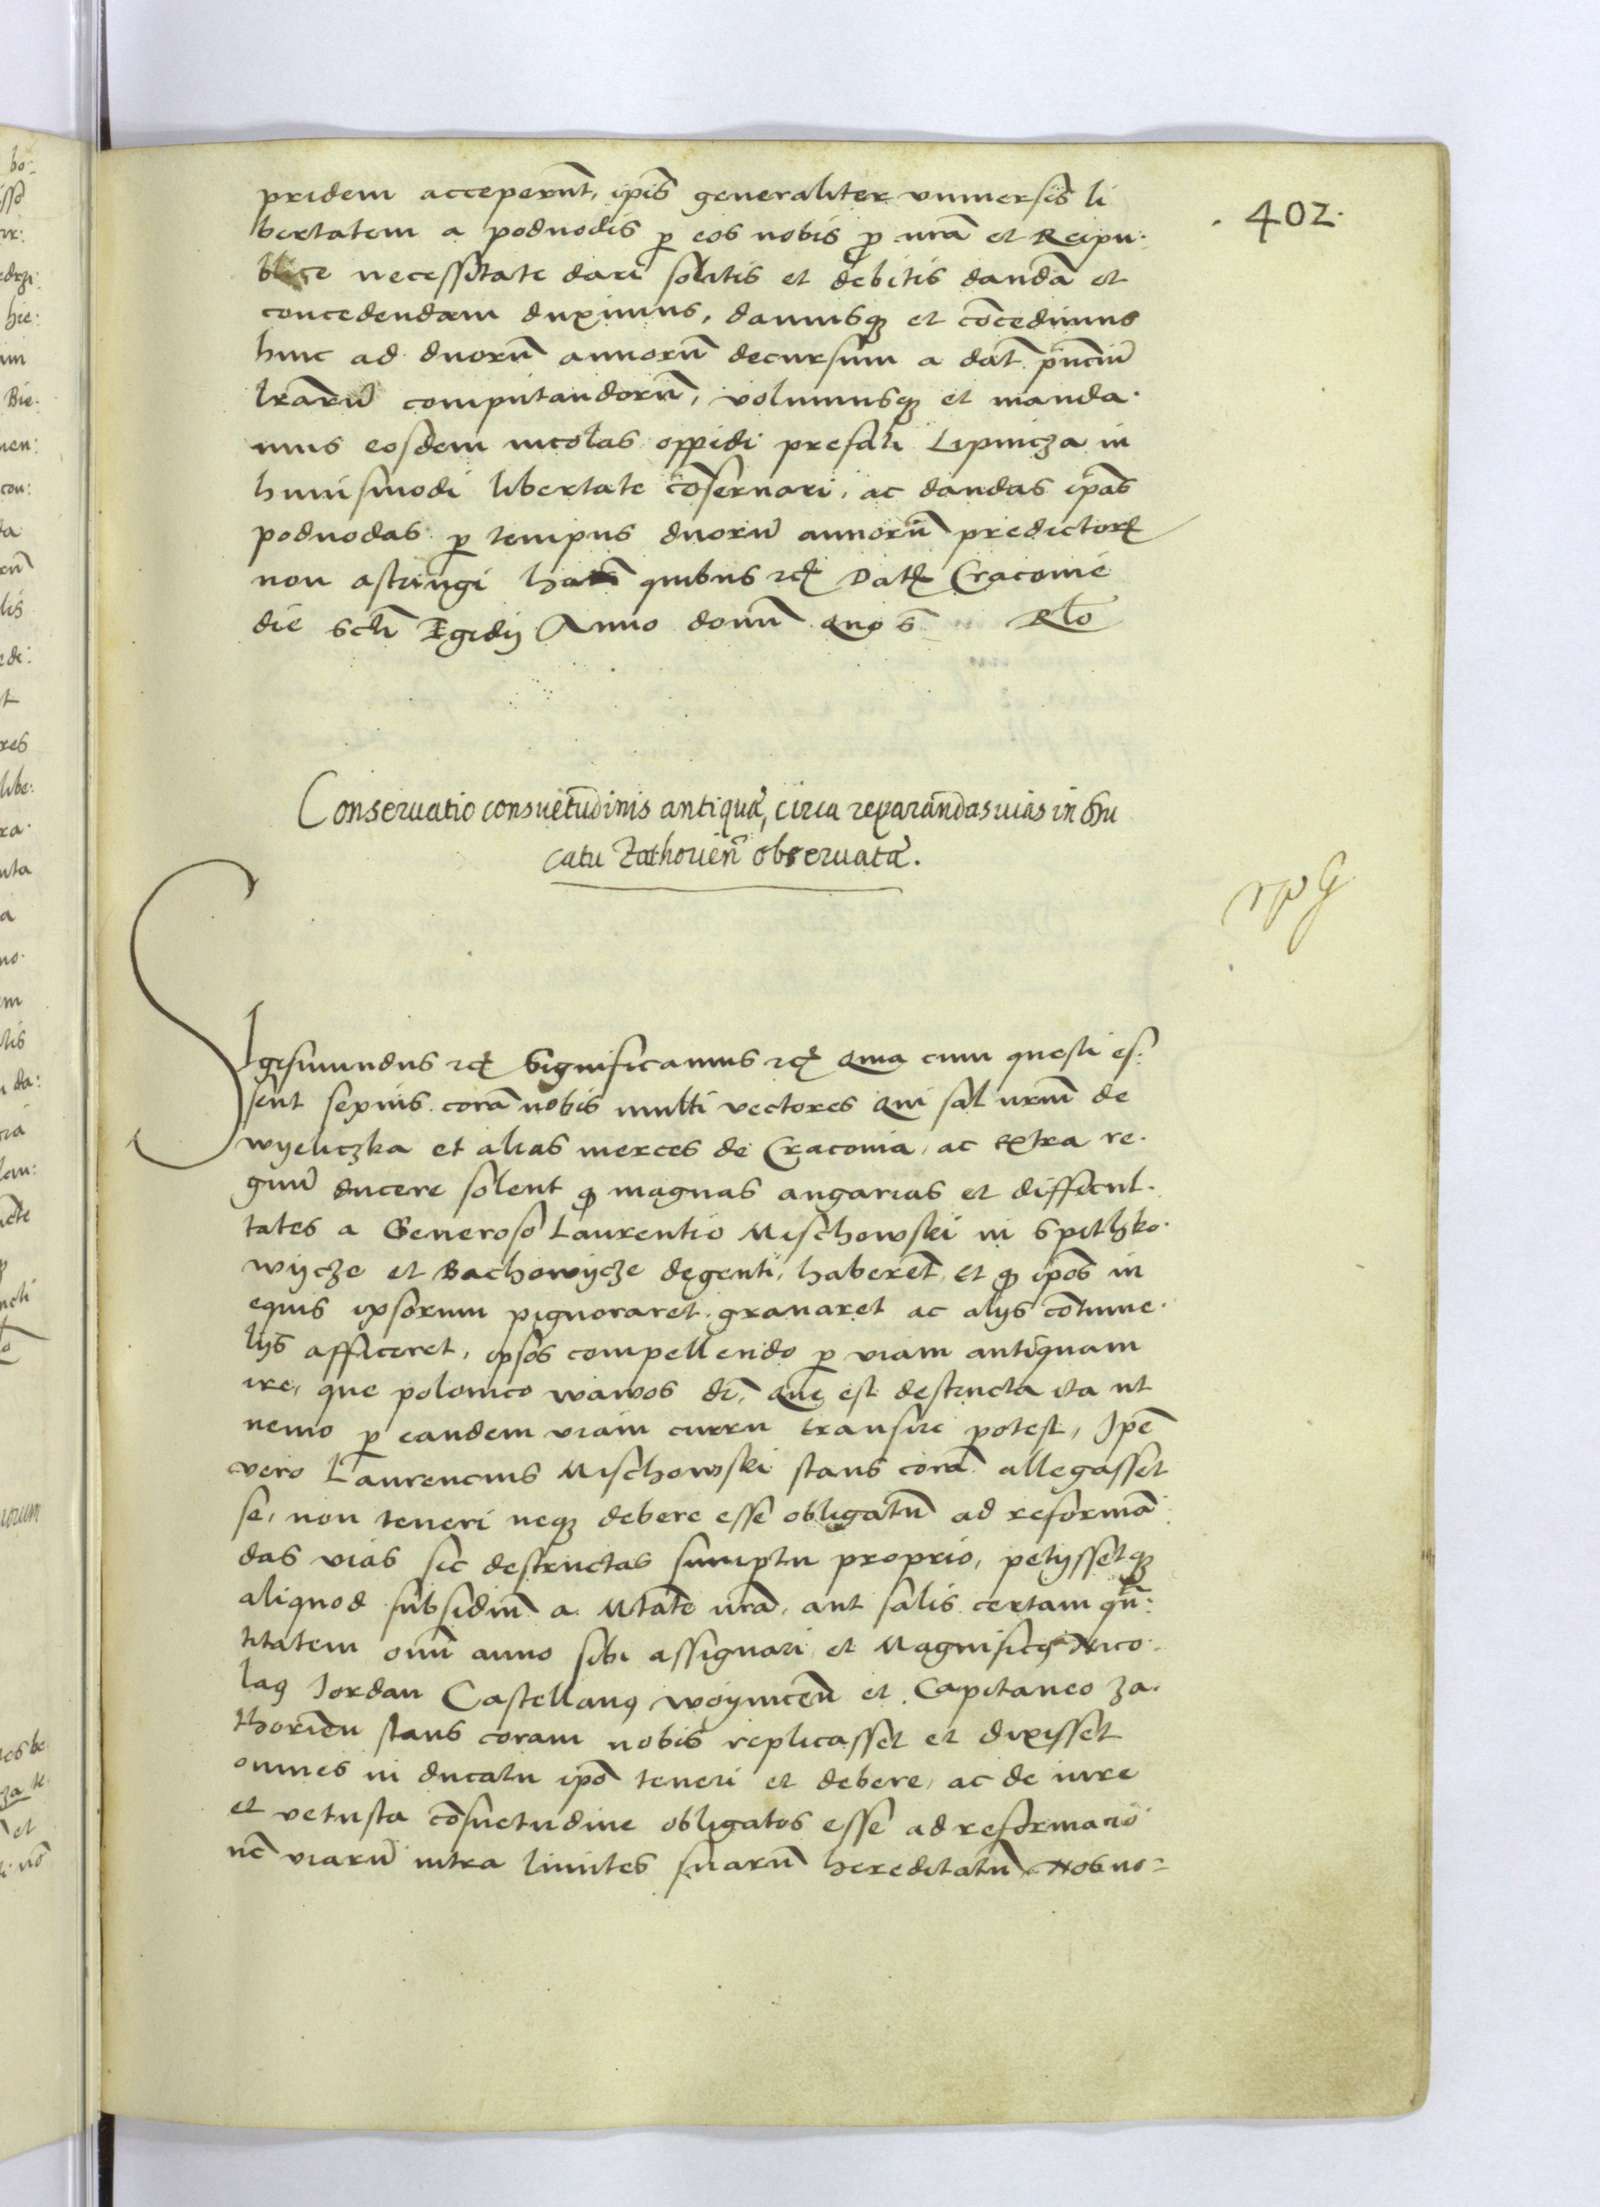 . 402.
pridem acceperūt, ipīs generaliter vniuersis li
bertatem a podvodis p eos nobis p nrā et Reipu:
blice necessitate dari solitis et debitis dandā et
concedendam duximus, damusq₃ et cōcedimus
hinc ad duorū annorū decursum a dat̄ p̄ntiū
lrārū computandorū, volumusq₃ et manda:
mus eosdem incolas oppidi prefati Lipnicza in
huiusmodi libertate cōseruari, ac dandas ipās
podvodas p tempus duorū annorū predictorꝝ
non astringi harū quibus rcꝫ Datꝫ Cracovie
die Scti Egidij Anno domī quo s̄ Rlō
Conseruatio consuetudinis antiquæ, circa reparandas uias in Du
catu Zathorien̄ obseruatæ.
Sigismundus rcꝫ Significamus rcꝫ Quia cum questi es:
sent sepius corā nobis multi vectores qui sal nrm̄ de
wyeliczka et alias merces de Cracovia, ac extra re:
gnū ducere solent ꝙ magnas angarias et difficul:
tates a Generoso Laurentio Mischowski in Spithko:
wycze et Bachowycze degenti, haberēt, et ꝙ ipōs in
equis ipsorum pignoraret, grauaret ac alijs cōtume:
lijs afficeret, ipsos compellendo p viam antiquam
ire, que polonico wawos dr̄, Que est destructa ita ut
nemo p eandem viam curru transire potest, Ipē
vero Laurencius Mischowski stans corā allegasset
se, non teneri neq₃ debere esse obligatū ad reformā
das vias sic destructas sumptu proprio, petijssetq₃
aliquod subsidiū a Mtāte nrā, aut salis certam quā:
titatem omī anno sibi assignari et Magnificꝰ Nico:
laꝰ Jordan Castellanꝰ woynicen̄ et Capitaneo Za:
thorien̄ stans coram nobis replicasset et dixisset
omnes in ducatu ipō teneri et debere, ac de iure
et vetusta cōsuetudine obligatos esse ad reformatio
nē viarū intra limites suarū hereditatū Nos uo: